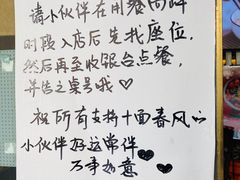 请小伙伴在用餐高峰
时段入店后先找座位,
然后再至收银台点餐,
并告之桌号哦♡
祝所有支持十面春风の
小伙伴好运常伴
万事如意